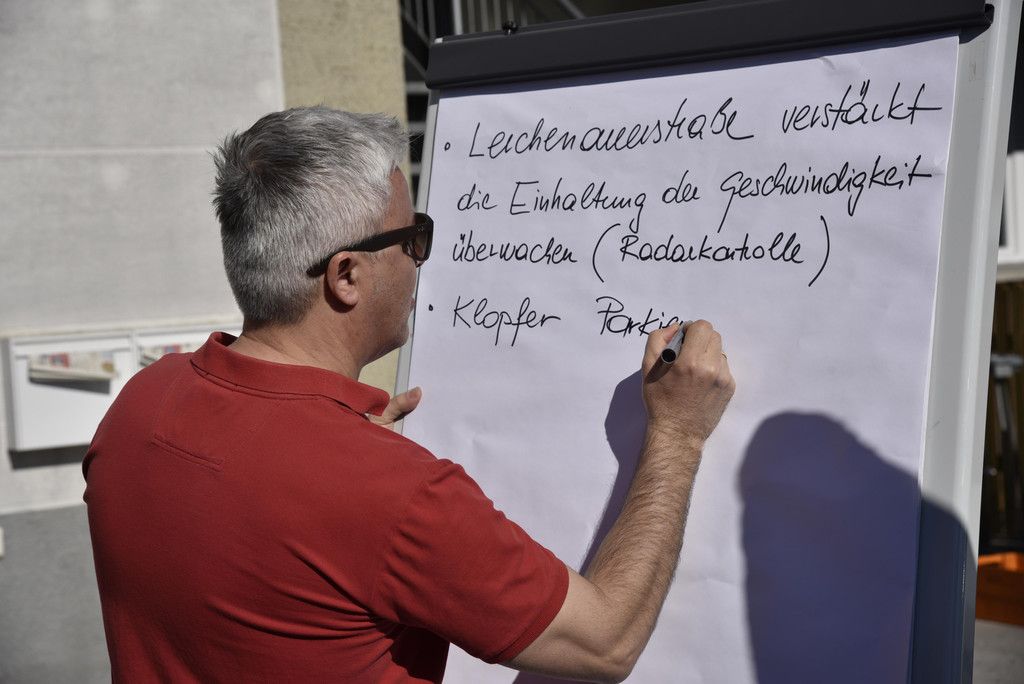 • Lerchenauerstraße verstärkt
die Einhaltung der Geschwindigkeit
überwachen (Radarkontrolle)
• Klopfer Parkie